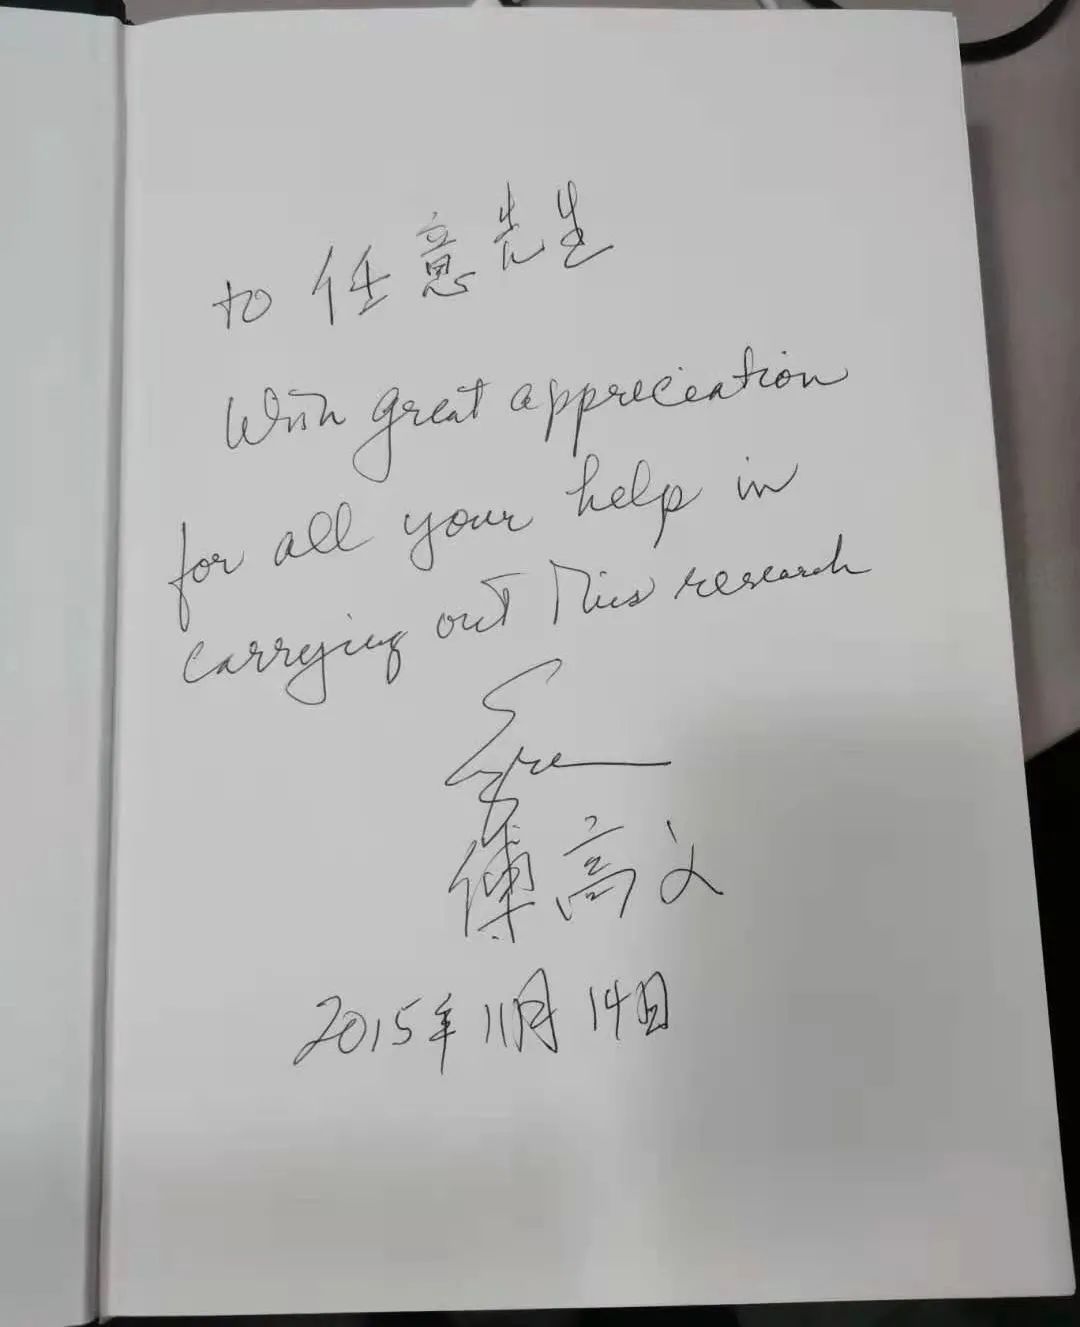 to 任意先生
With great appreciation
for all your help in
carrying out this research
Ezra
傅高义
2015年11月14日